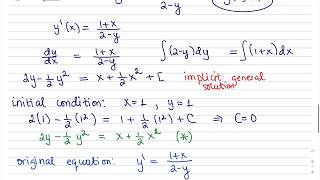 2-y
y'(x) = (1+x)/(2-y)
dy/dx = (1+x)/(2-y) ∫(2-y)dy = ∫(1+x)dx
2y - ½y² = x + ½x² + C implicit general solution
initial condition: x=1, y=1
2(1) - ½(1²) = 1 + ½(1²) + C ⇒ C=0
2y - ½y² = x + ½x² (*)
original equation: y' = (1+x)/(2-y)